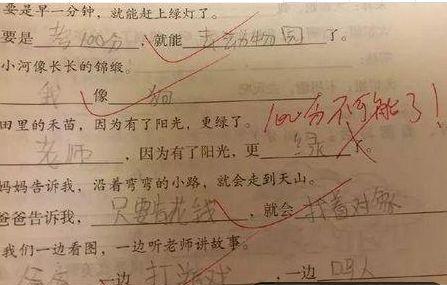 要是早一分钟，就能赶上绿灯了。
要是 考100分 ，就能 去动物园 了。
小河像长长的锦缎。
我 像 狗
100分不可能了！
田里的禾苗，因为有了阳光，更绿了。
老师 ，因为有了阳光，更 绿 了。
妈妈告诉我，沿着弯弯的小路，就会走到天山。
爸爸告诉我， 只要 花钱 ，就会 找着对象
我们一边看图，一边听老师讲故事。
一边 打游戏 ，一边 骂人